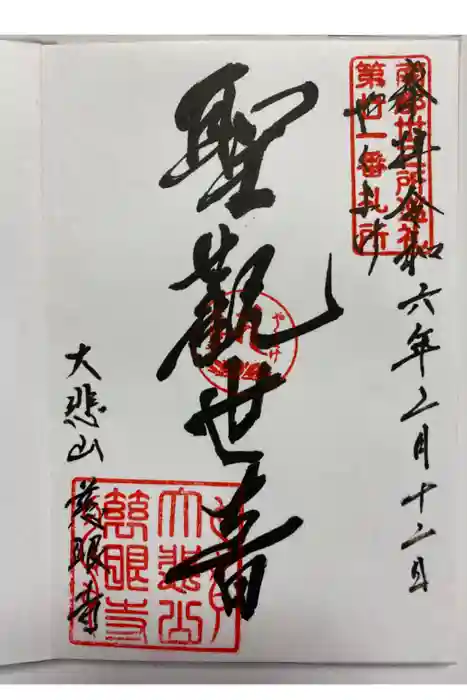 奉拝 令和六年二月十二日
第廿一番札所
聖觀世音
大悲山 慈眼寺
大悲山
慈眼寺